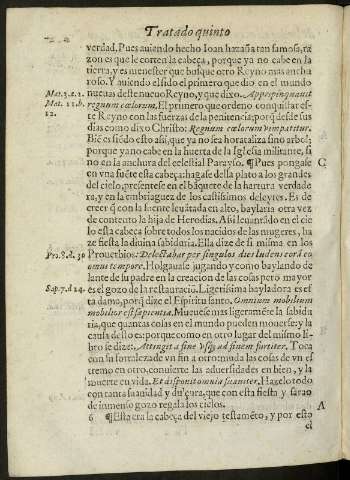 Tratado quinto
verdad. Pues auiendo hecho Ioan hazaña tan famosa, ra
zon es que le corten la cabeça, porque ya no cabe en la
tierra, y es menester que busque otro Reyno mas ancho
roso. Y auiendo el sido el primero que dio en el mundo
Mat. 3. a. 2. nueuas deste nueuo Reyno, y que dixo. Appropinquauit
Mat. 11. b. regnum cœlorum. El primero que ordeno conquistar es-
12. te Reyno con las fuerzas de la penitencia; porq̃ desde sus
dias como dixo Christo: Regnum cœlorum vim patitur.
Biẽ es siẽdo esto assi, que ya no sea hortaliza sino arbol;
porque ya no cabe en la huerta de la Iglesia militante, si
no en la anchura del celestial Parayso. ¶ Pues pongase C
en vna fuẽte esta cabeça: hagase della plato a los grandes
del cielo, presentese en el bãquete de la hartura verdade
ra, y en la embriaguez de los castissimos deleytes. Es de
creer q̃ con la fuente leuãtada en alto, baylaria otra vez
de contento la hija de Herodias. Assi leuanrãdo en el cie
lo esta cabeça sobre todos los nacidos de las mugeres, ha
ze fiesta la diuina sabiduria. Ella dize de si misma en los
Pro. 8. d. 30 Prouerbios: Delectabar per singulos dies ludens corã eo
omni tempore. Holgauase jugando y como baylando de
lante de su padre en la creacion de las cosas pero mayor
Sap. 7. d 24. es el gozo de la restauraciõ. Ligerissima bayladora es es
ta damo, porq̃ dize el Espiritu santo. Omnium mobilium
mobilior est sapientia. Mueuese mas ligeramẽte la sabidu
ria, que quantas cosas en el mundo pueden mouerse: y la
causa dello es: porque como en otro lugar del mismo li-
bro se dize: Attingit a fine vsq; ad finem fortiter. Toca
con su fortaleza de vn fin a otro: muda las cosas de vn es
tremo en otro, conuierte las aduersidades en bien, y la
muerte en vida. Et disponit omnia suauiter. Hazelo todo
con tanta suauidad y dulçura, que con esta fiesta y sarao
de inmenso gozo regala los cielos. A
6 ¶ Esta era la cabeça del viejo testamẽto, y por esto
el